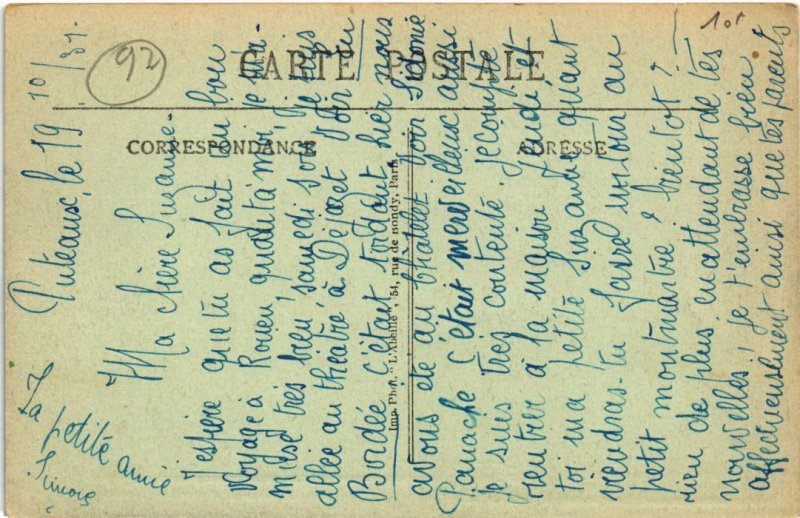 CARTE POSTALE
CORRESPONDANCE
ADRESSE
Imp. Phot. "L'Abeille", 51, rue de nondy, Paris
92
10f
Puteaux, le 19 10/31.
Ma chère Suzanne
J'espère que tu as fait un bon
voyage à Rouen, quand à moi je m'a-
muse très bien, samedi soir je suis
allée au théâtre à Déjazet voir en
Bordée c'était tordant hier nous
avons été au châtelet voir Sidonie
Panache c'était merveilleux aussi
je suis très contente. Je compte
rentrer à la maison jeudi et
toi ma petite Suzanne quand
viendras-tu faire un tour au
petit montmartre ? bientôt ?
rien de plus, en attendant de tes
nouvelles, je t'embrasse bien
affectueusement ainsi que tes parents
Ta petite amie
Simone